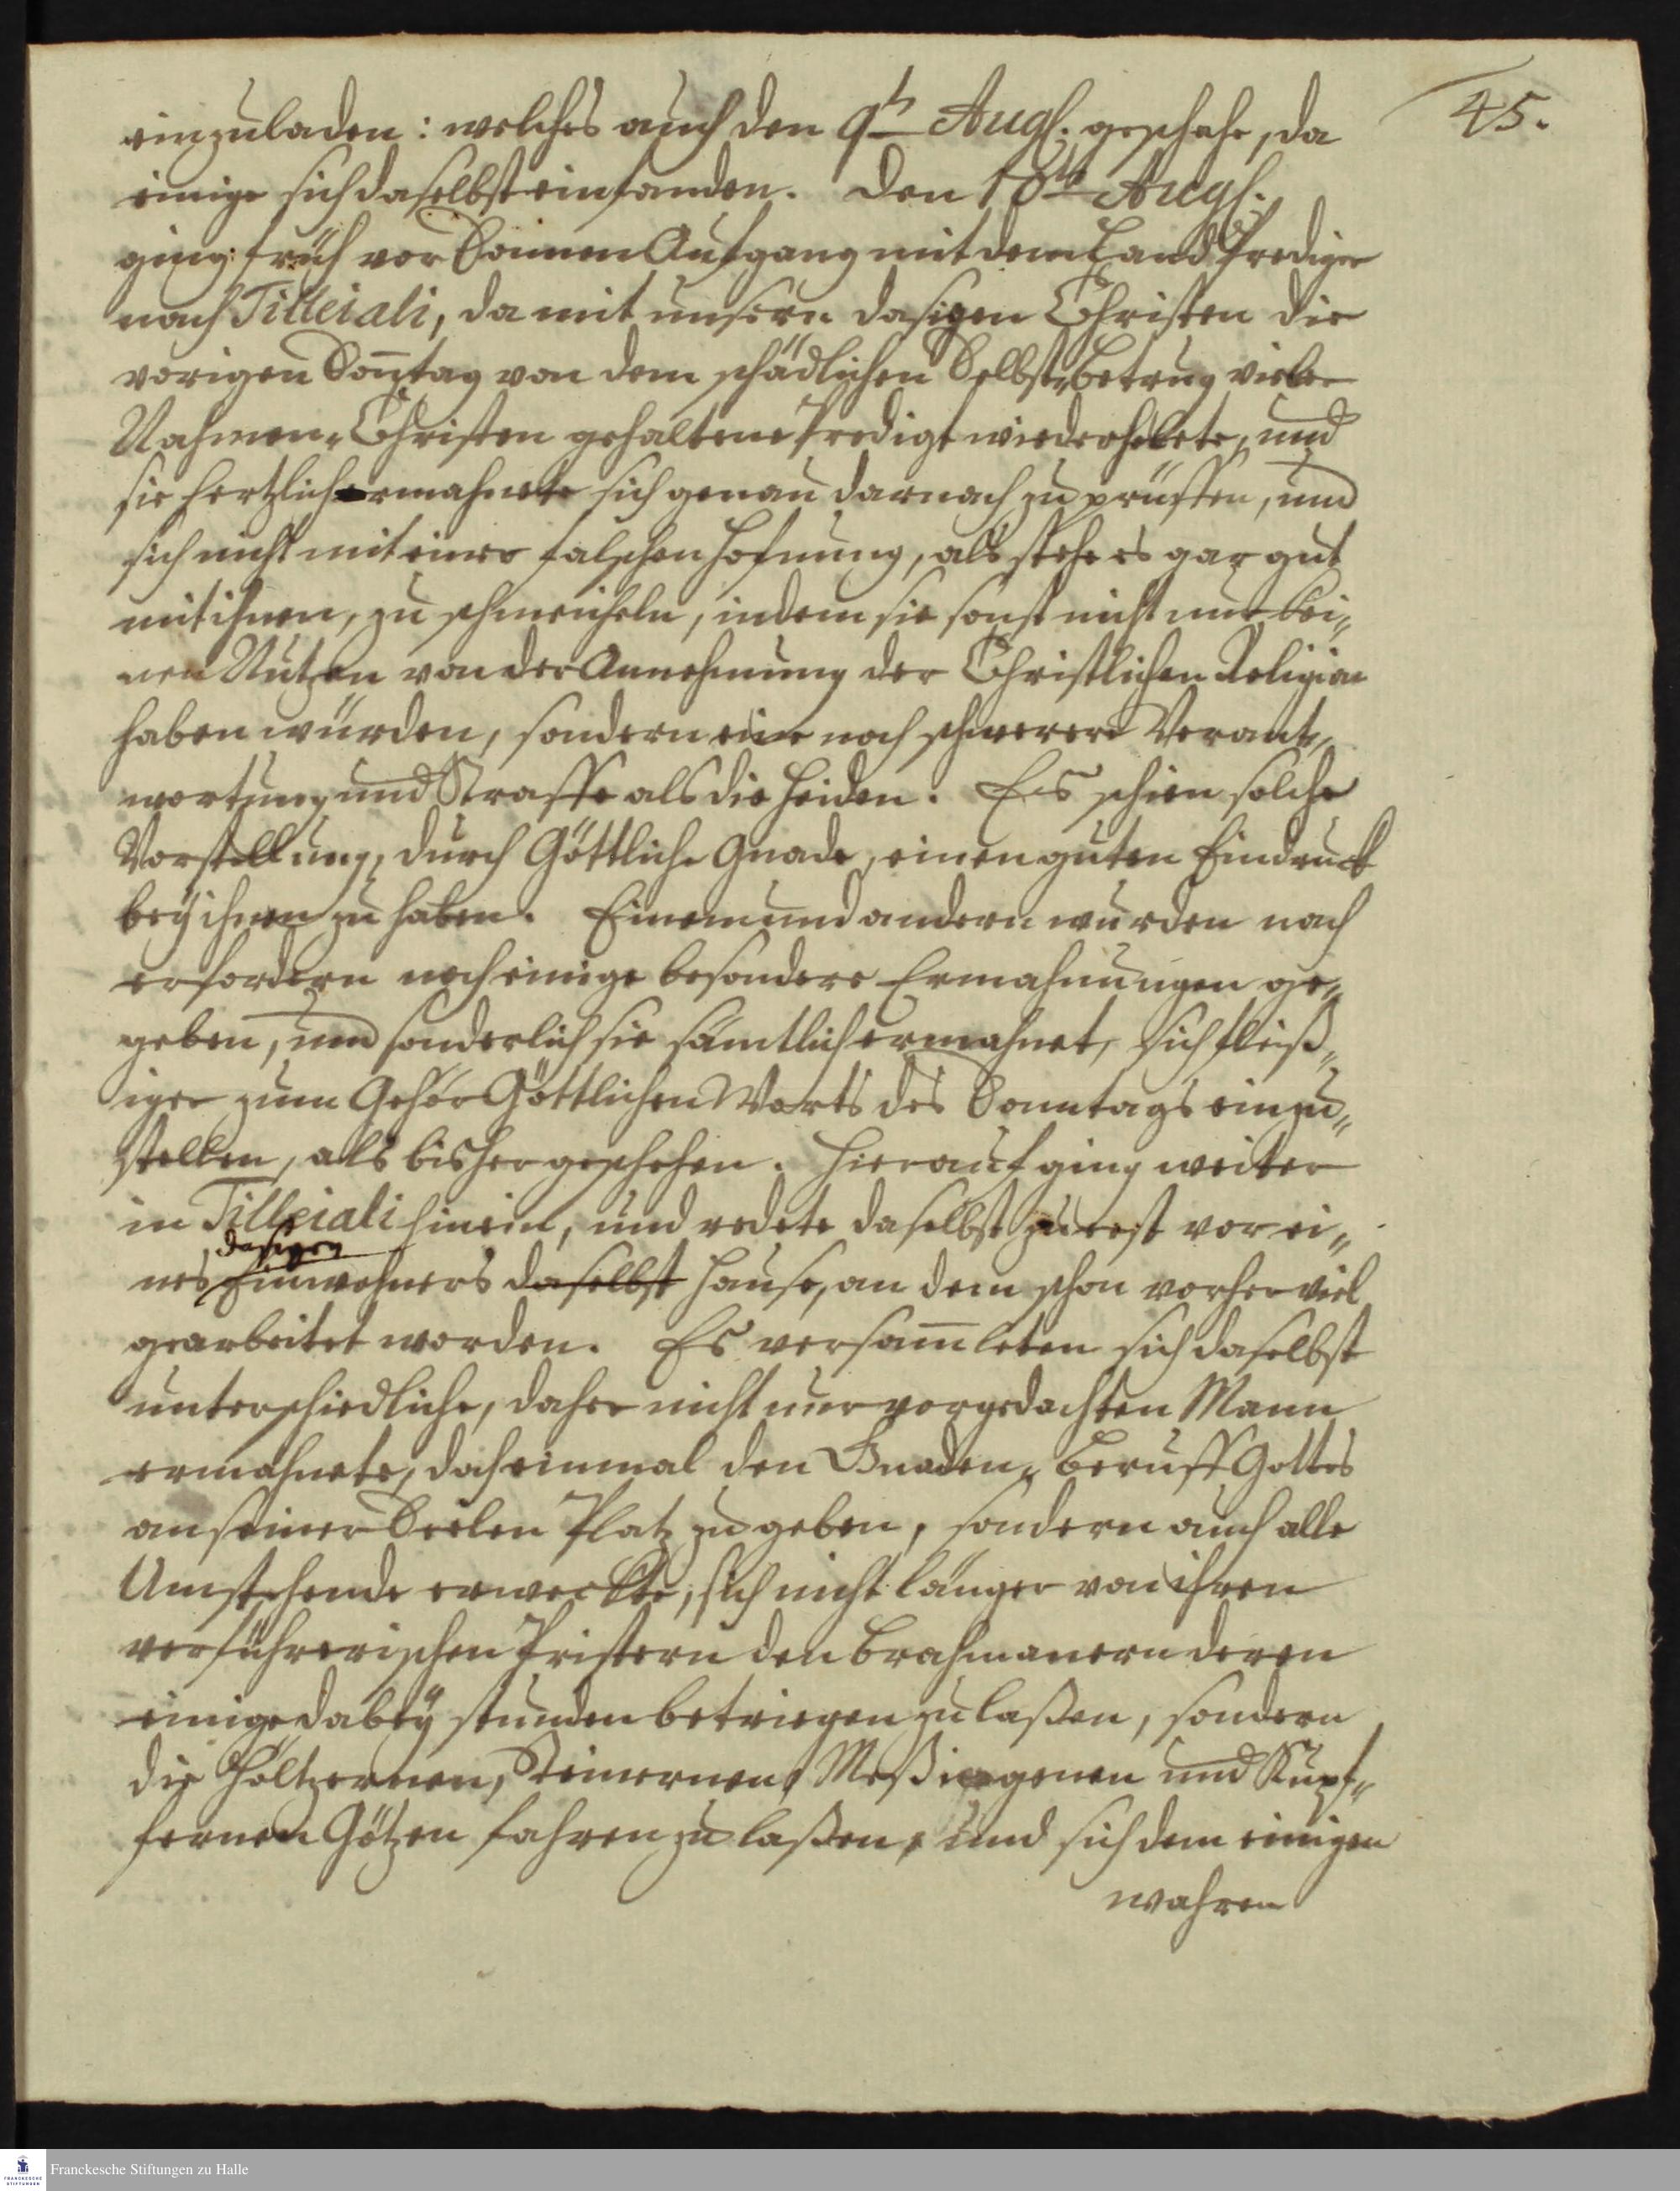 45.
einzuladen: welches auch den 9t. Augs. geschahe, da
einige sich daselbst einfanden. Den 10ten Augs.
ging früh vor Sonnen Aufgang mit dem Land Prediger
nach Tilleiali, da mit unsern dasigen Christen die
vorigen Soñtag von dem schädlichen Selbst-Betrug vieler
Nahmen-Christen gehaltene Predigt wiederholete, und
sie hertzlich ermahnete sich genau darnach zu prüffen, und
sich nicht mit einer falschen Hofnung, als stehe es gar gut
mit ihnen, zu schmeicheln, indem sie sonst nicht nur kei-
nen Nutzen von der Annehmung der Christlichen Religion
haben würden, sondern eine noch schwerere Verant-
wortung und Straffe als die Heiden. Es schien solche
Vorstellung, durch Göttliche Gnade, einen guten Eindruck
beÿ ihnen zu haben. Einem und andern wurden nach
erfordern noch einige besondere Ermahnungen ge-
geben, und sonderlich sie sämtlich ermahnet, sich fleiß-
iger zum Gehör Göttlichen Worts des Sonntags einzu-
stellen, als bisher geschehen. Hierauf ging weiter
in Tilleiali hinein, und redete daselbst zuerst vor ei-
dasigen
nes Einwohners daselbst Hause, an dem schon vorher viel
gearbeitet worden. Es versam̄leten sich daselbst
unterschiedliche, daher nicht nur vorgedachten Mann
ermahnete, doch einmal den Gnaden-Beruff Gottes
an seiner Seelen Platz zu geben, sondern auch alle
Umstehende erweckte, sich nicht länger von ihren
verführerischen Pristern den Brahmanern deren
einige dabeÿ stunden betriegen zu laßen, sondern
die Höltzernen, Steinernen, Meßingenen und Kupf-
fernen Götzen fahren zu laßen, und sich dem einigen
wahren
Franckesche Stiftungen zu Halle